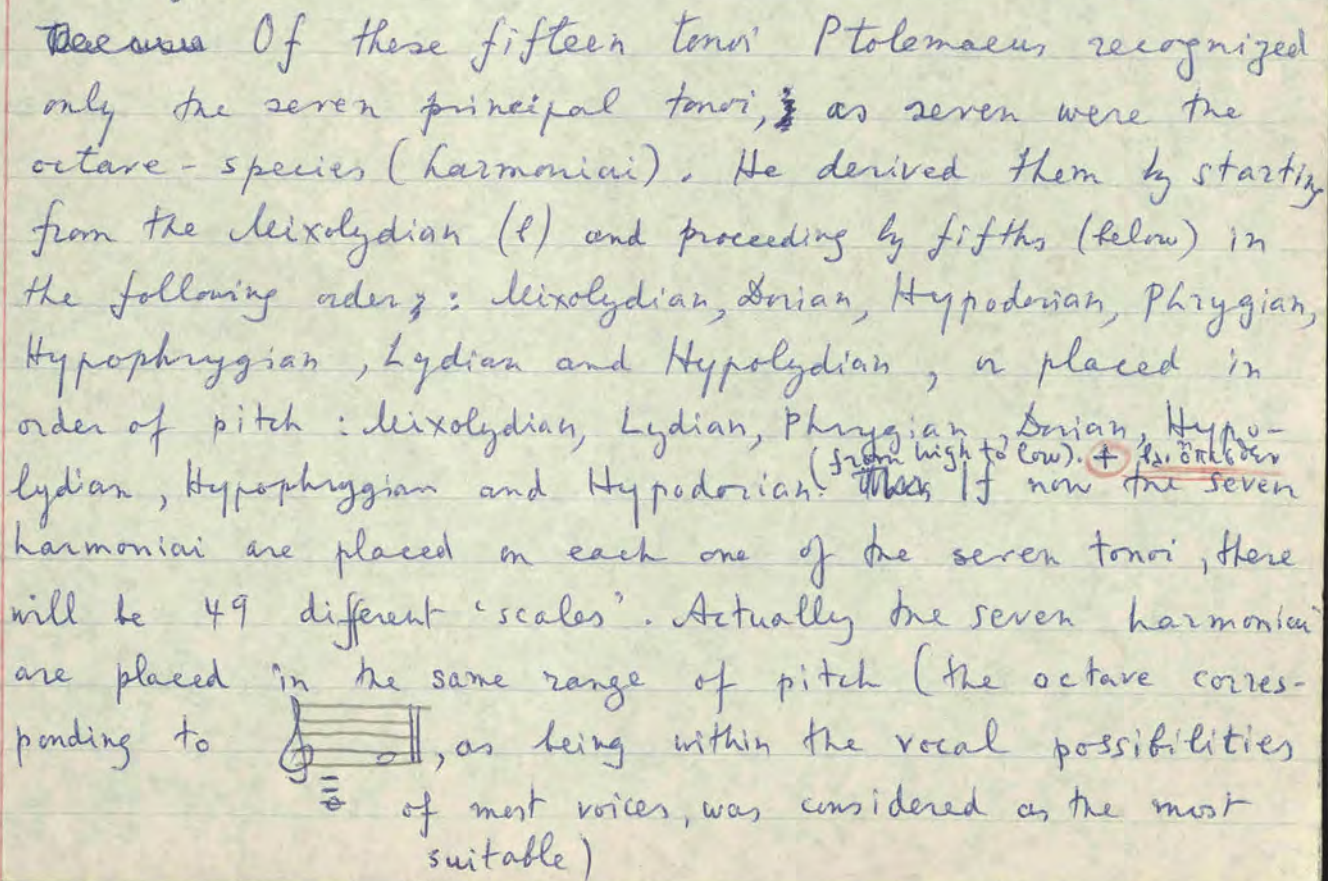 Of these fifteen tonoi Ptolemaeus recognized
only the seven principal tonoi, as seven were the
octave-species (harmoniai). He derived them by starting
from the Mixolydian (e) and proceeding by fifths (below) in
the following order: Mixolydian, Dorian, Hypodorian, Phrygian,
Hypophrygian, Lydian and Hypolydian, or placed in
order of pitch: Mixolydian, Lydian, Phrygian, Dorian, Hypo-
(from high to low). + βλ. όπισθεν
lydian, Hypophrygian and Hypodorian. If now the seven
harmoniai are placed on each one of the seven tonoi, there
will be 49 different 'scales'. Actually the seven harmoniai
are placed in the same range of pitch (the octave corres-
ponding to , as being within the vocal possibilities
of most voices, was considered as the most
suitable)